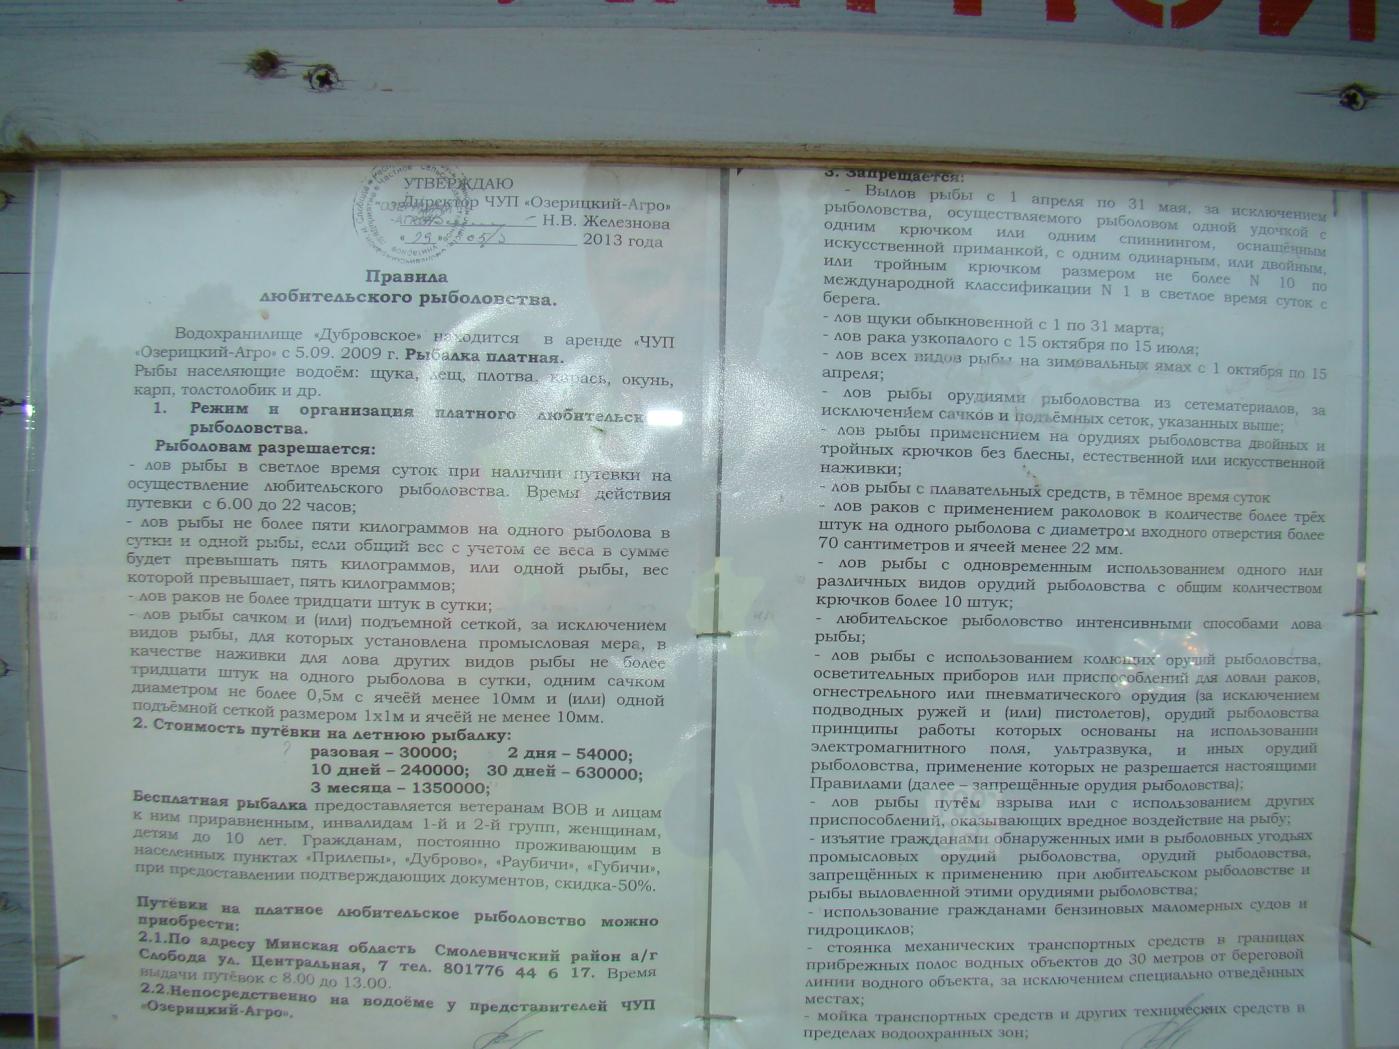 УТВЕРЖДАЮ
Директор ЧУП «Озерицкий-Агро»
Н.В. Железнова
2013 года
Правила
любительского рыболовства.
Водохранилище «Дубровское» находится в аренде «ЧУП
«Озерицкий-Агро» с 5.09. 2009 г. Рыбалка платная.
Рыбы населяющие водоём: щука, лещ, плотва, карась, окунь,
карп, толстолобик и др.
1. Режим и организация платного любительск
рыболовства.
Рыболовам разрешается:
- лов рыбы в светлое время суток при наличии путевки на
осуществление любительского рыболовства. Время действия
путевки с 6.00 до 22 часов;
- лов рыбы не более пяти килограммов на одного рыболова в
сутки и одной рыбы, если общий вес с учетом ее веса в сумме
будет превышать пять килограммов, или одной рыбы, вес
которой превышает, пять килограммов;
- лов раков не более тридцати штук в сутки;
- лов рыбы сачком и (или) подъемной сеткой, за исключением
видов рыбы, для которых установлена промысловая мера, в
качестве наживки для лова других видов рыбы не более
тридцати штук на одного рыболова в сутки, одним сачком
диаметром не более 0,5м с ячеёй менее 10мм и (или) одной
подъёмной сеткой размером 1х1м и ячеёй не менее 10мм.
2. Стоимость путёвки на летнюю рыбалку:
разовая – 30000; 2 дня – 54000;
10 дней – 240000; 30 дней – 630000;
3 месяца – 1350000;
Бесплатная рыбалка предоставляется ветеранам ВОВ и лицам
к ним приравненным, инвалидам 1-й и 2-й групп, женщинам,
детям до 10 лет. Гражданам, постоянно проживающим в
населенных пунктах «Прилепы», «Дуброво», «Раубичи», «Губичи»,
при предоставлении подтверждающих документов, скидка-50%.
Путёвки на платное любительское рыболовство можно
приобрести:
2.1.По адресу Минская область Смолевичский район а/г
Слобода ул. Центральная, 7 тел. 801776 44 6 17. Время
выдачи путёвок с 8.00 до 13.00.
2.2.Непосредственно на водоёме у представителей ЧУП
«Озерицкий-Агро».
3. Запрещается:
- Вылов рыбы с 1 апреля по 31 мая, за исключением
рыболовства, осуществляемого рыболовом одной удочкой с
одним крючком или одним спиннингом, оснащённым
искусственной приманкой, с одним одинарным, или двойным,
или тройным крючком размером не более N 10 по
международной классификации N 1 в светлое время суток с
берега.
- лов щуки обыкновенной с 1 по 31 марта;
- лов рака узкопалого с 15 октября по 15 июля;
- лов всех видов рыбы на зимовальных ямах с 1 октября по 15
апреля;
- лов рыбы орудиями рыболовства из сетематериалов, за
исключением сачков и подъёмных сеток, указанных выше;
- лов рыбы применением на орудиях рыболовства двойных и
тройных крючков без блесны, естественной или искусственной
наживки;
- лов рыбы с плавательных средств, в тёмное время суток
- лов раков с применением раколовок в количестве более трёх
штук на одного рыболова с диаметром входного отверстия более
70 сантиметров и ячеей менее 22 мм.
- лов рыбы с одновременным использованием одного или
различных видов орудий рыболовства с общим количеством
крючков более 10 штук;
- любительское рыболовство интенсивными способами лова
рыбы;
- лов рыбы с использованием колющих орудий рыболовства,
осветительных приборов или приспособлений для ловли раков,
огнестрельного или пневматического орудия (за исключением
подводных ружей и (или) пистолетов), орудий рыболовства
принципы работы которых основаны на использовании
электромагнитного поля, ультразвука, и иных орудий
рыболовства, применение которых не разрешается настоящими
Правилами (далее – запрещённые орудия рыболовства);
- лов рыбы путём взрыва или с использованием других
приспособлений, оказывающих вредное воздействие на рыбу;
- изъятие гражданами обнаруженных ими в рыболовных угодьях
промысловых орудий рыболовства, орудий рыболовства,
запрещённых к применению при любительском рыболовстве и
рыбы выловленной этими орудиями рыболовства;
- использование гражданами бензиновых маломерных судов и
гидроциклов;
- стоянка механических транспортных средств в границах
прибрежных полос водных объектов до 30 метров от береговой
линии водного объекта, за исключением специально отведённых
местах;
- мойка транспортных средств и других технических средств в
пределах водоохранных зон;